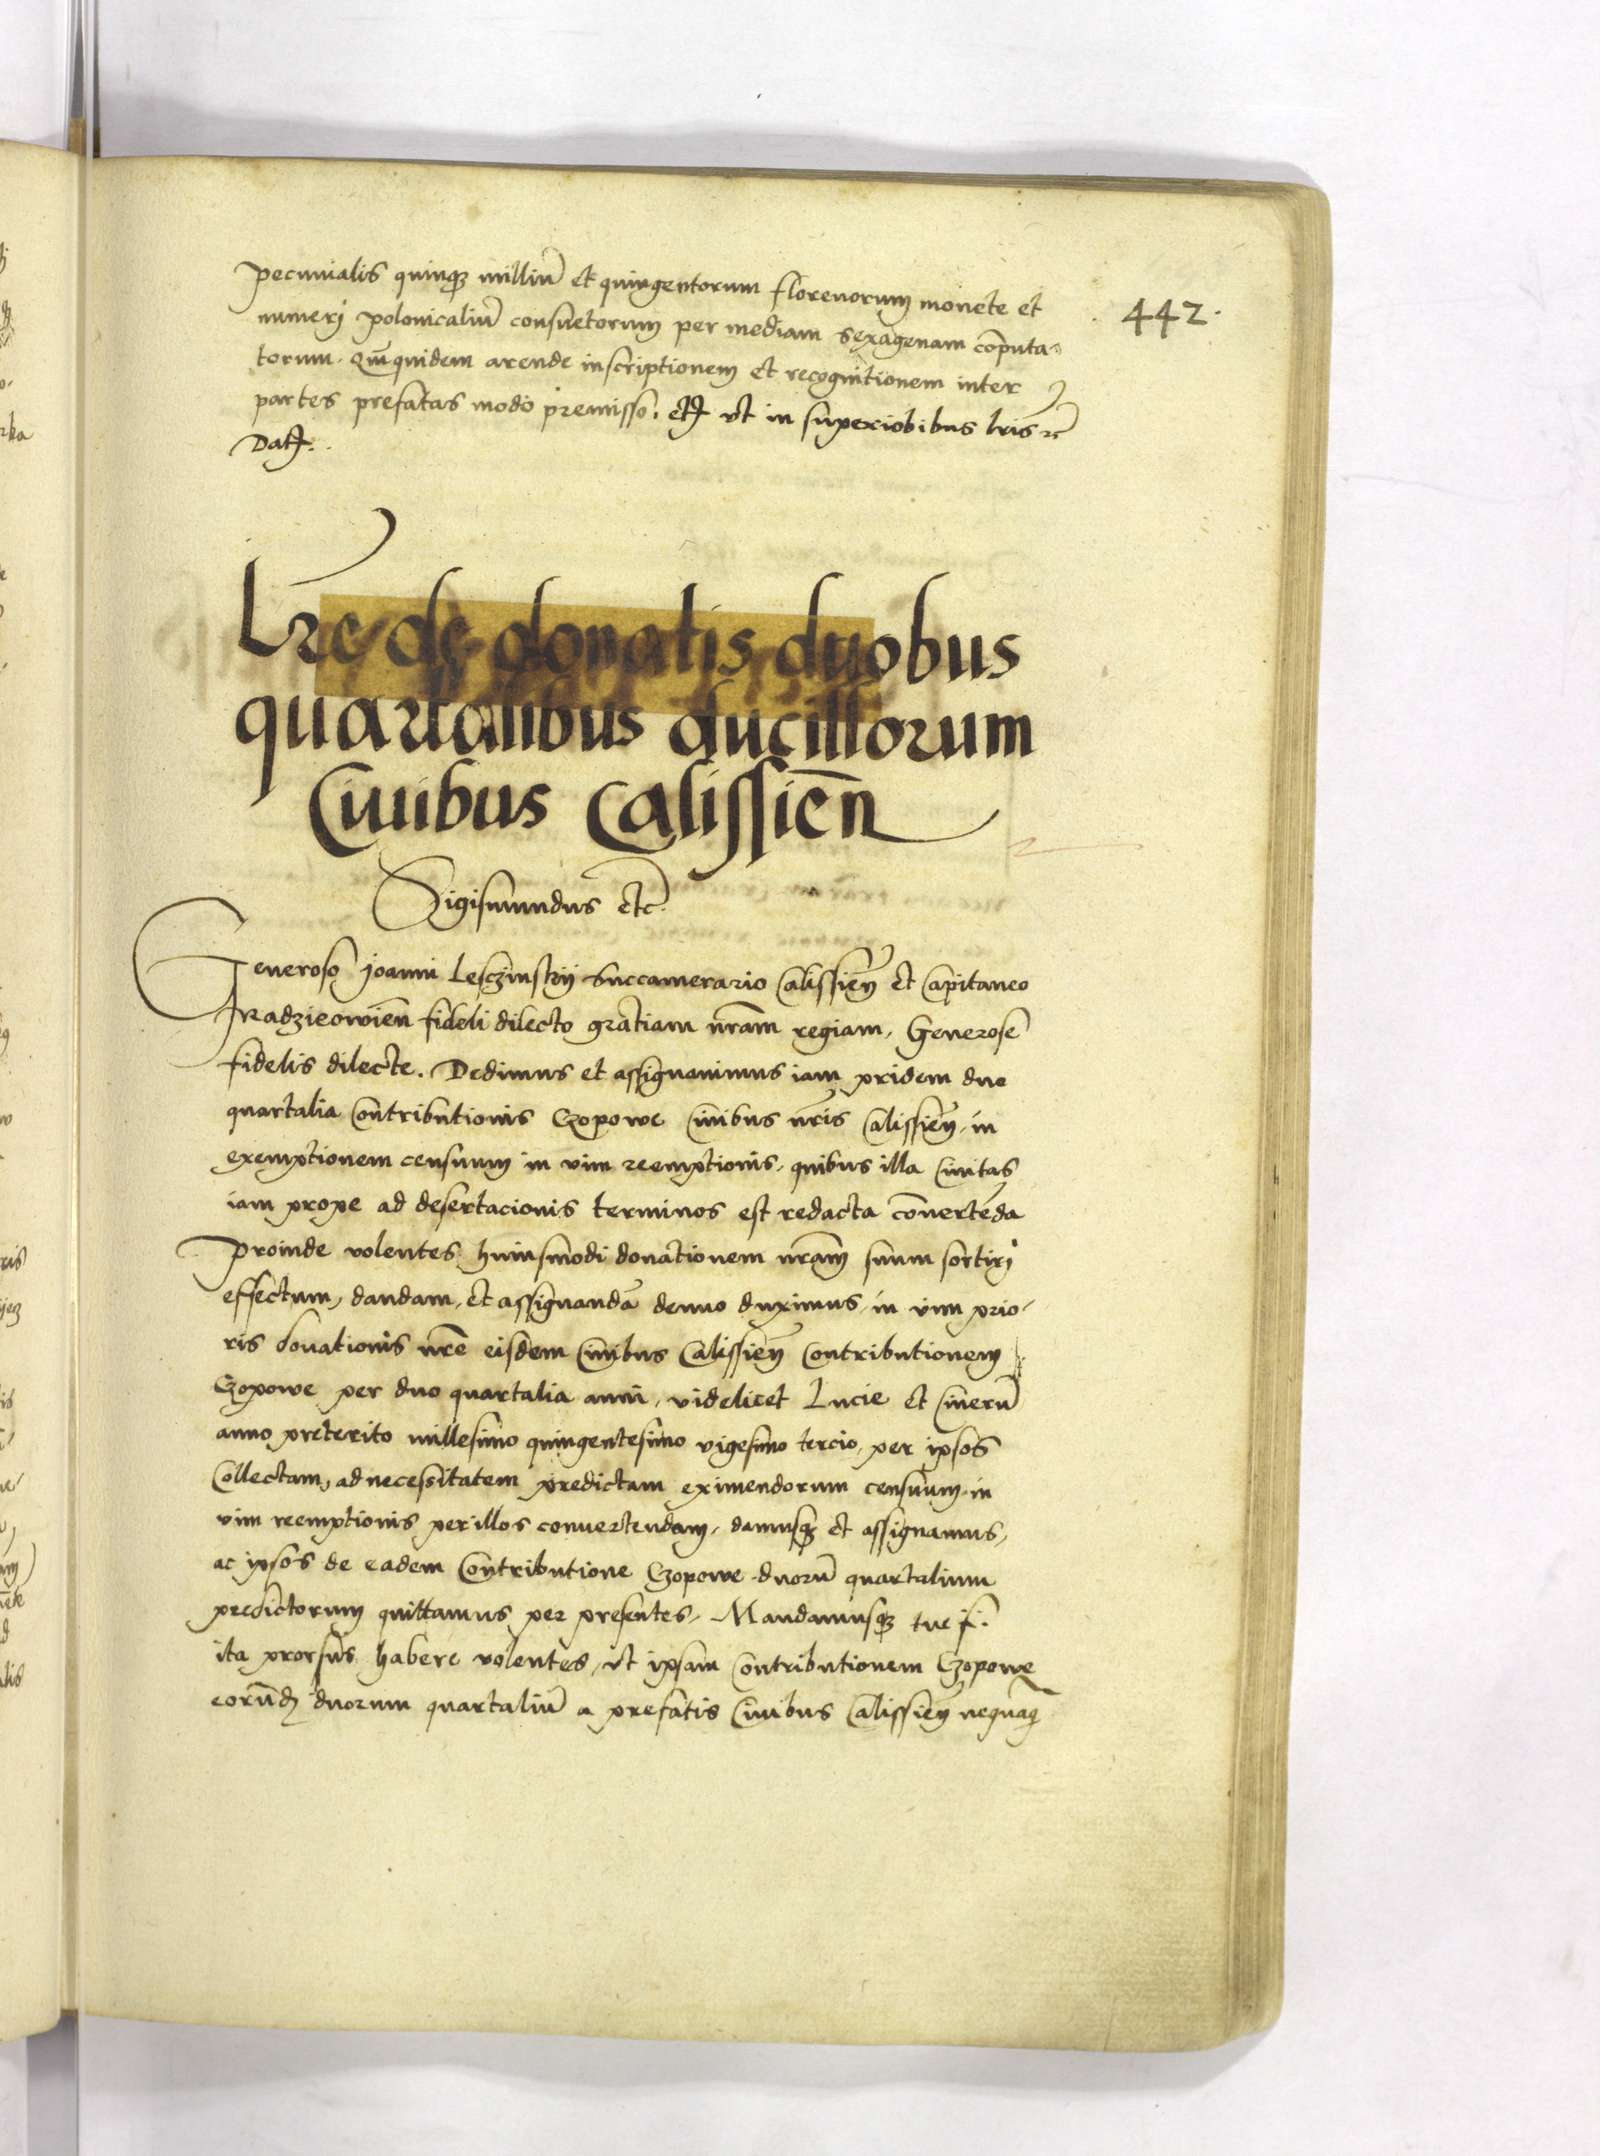 442.
pecunialis quinqʒ milliū et quingentorum florenorum monete et
numerj polonicaliū consuetorum per mediam sexagenam cōputa-
torum. Qm̄quidem arende inscriptionem et recognitionem inter
partes prefatas modo premisso. etc̄ vt in superiobibus lr̄is etc̄
Dat̄.
Lr̄e de donatis duobus
quartalibus ducillorum
Ciuibus Calissień
Sigismundus etc̄.
Generoso joanni Lesczinskÿ Succamerario Calissień et Capitaneo
Radzieowień fideli dilecto gratiam nr̄am regiam. Generose
fidelis dilecte. Dedimus et assignauimus iam pridem duo
quartalia Contributionis Czopowe Ciuibus nr̄is Calissień in
exemptionem censuum in vim reemptionis, quibus illa Ciuitas
iam prope ad desertacionis terminos est redacta cōuertēda
Proinde volentes huiusmodi donationem nr̄am suum sortirj
effectum, dandam, et assignandā denuo duximus, in vim prio-
ris donationis nr̄e eisdem Ciuibus Calissień Contributionem
Czopowe per duo quartalia anni, videlicet Lucie et Cinerū
anno preterito millesimo quingentesimo vigesimo tercio, per ipsos
Collectam, ad necessitatem predictam eximendorum censuum in
vim reemptionis per illos conuertendam, damusqʒ et assignamus,
ac ipsos de eadem Contributione Czopowe duorū quartalium
predictorum quittamus per presentes. Mandamusqʒ tue f.
ita prorsus habere volentes, vt ipsam Contributionem Czopowe
eorūdē duorum quartaliū a prefatis Ciuibus Calissień nequaq̄